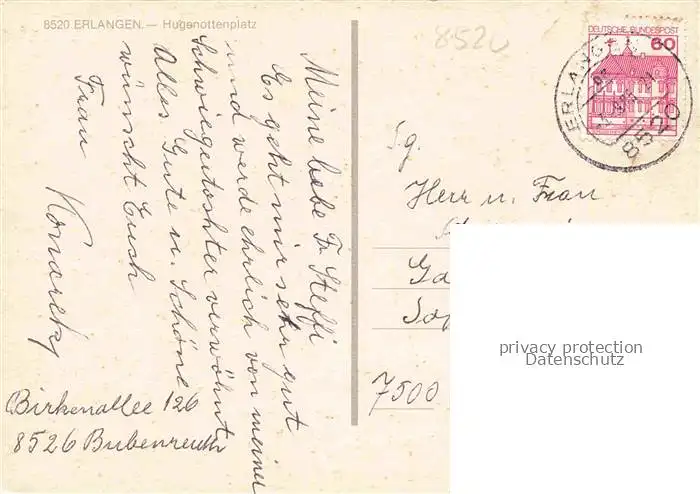 8520 ERLANGEN. — Hugenottenplatz
8520
Meine liebe Fr. Steffi
Es geht mir sehr gut
und werde ehrlich von meiner
Schwiegertochter verwöhnt
Alles Gute u. Schöne
wünscht Euch
Frau
Birkenallee 126
8526 Bubenreuth
DEUTSCHE BUNDESPOST
60
ERLANGEN
8520
Sg.
Herr u. Frau
7500
privacy protection
Datenschutz